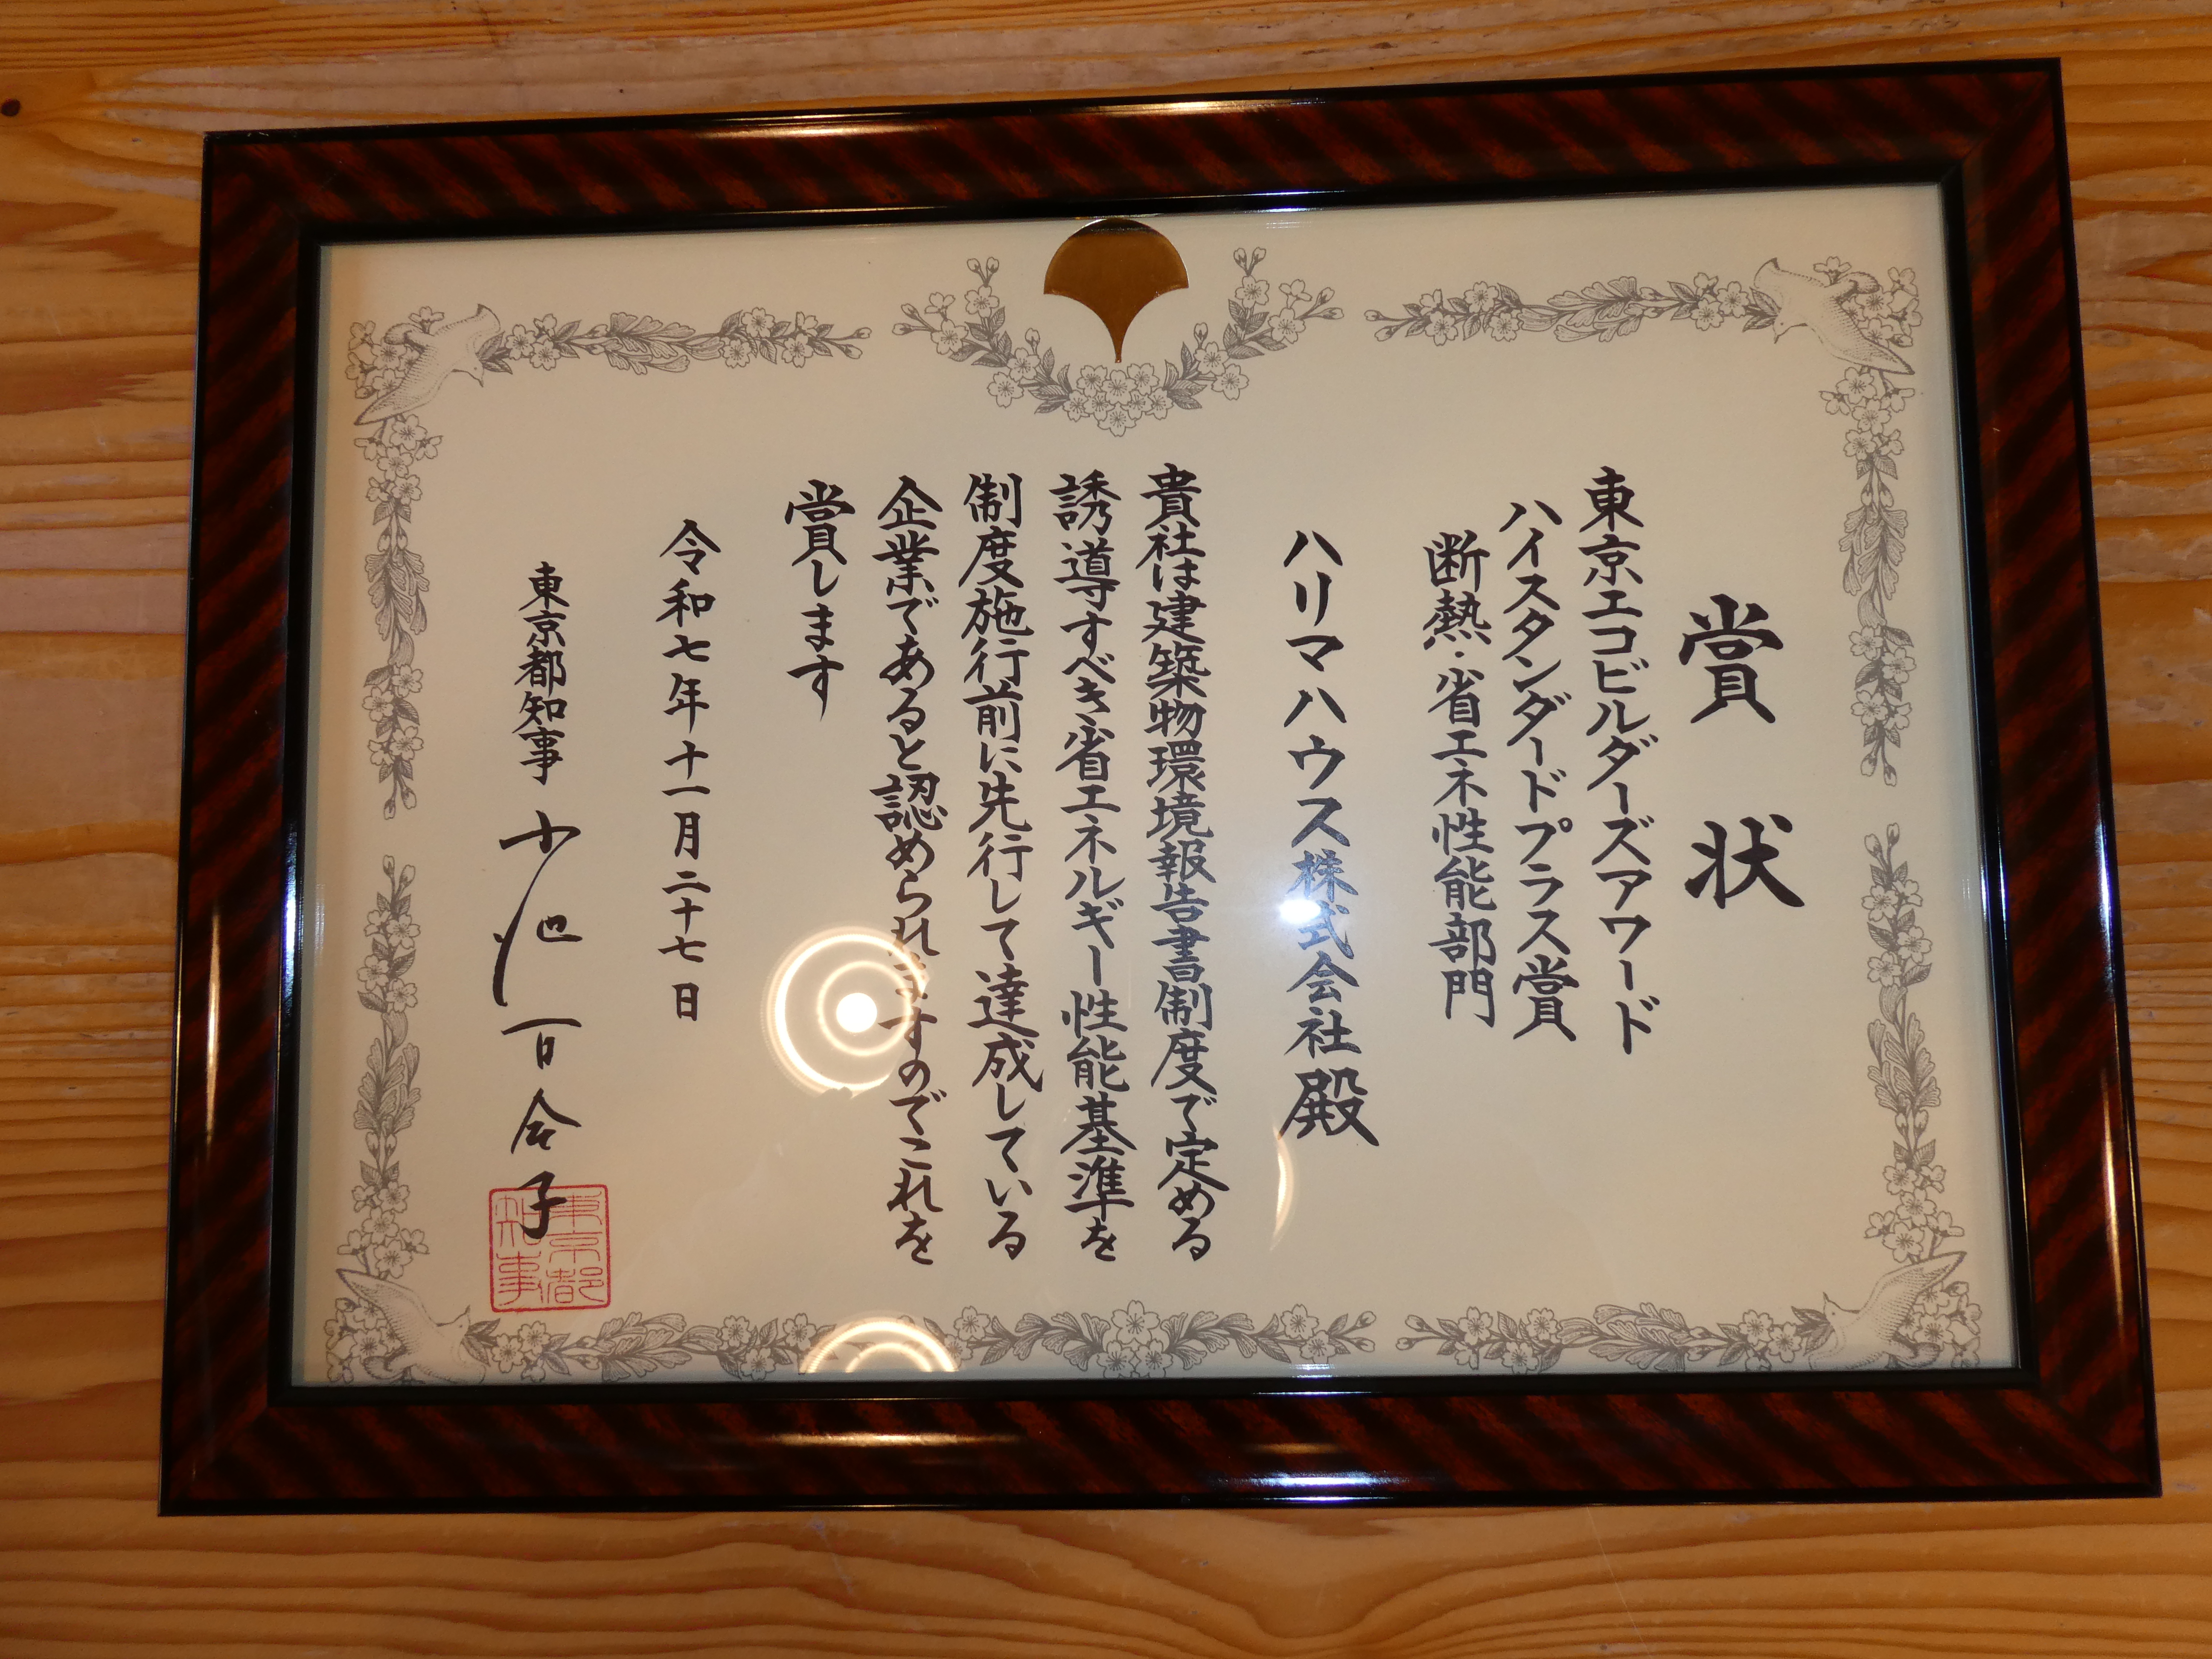 賞状
東京エコビルダーズアワード
ハイスタンダードプラス賞
断熱・省エネ性能部門
ハリマハウス株式会社殿
貴社は建築物環境報告書制度で定める
誘導すべき省エネルギー性能基準を
制度施行前に先行して達成している
企業であると認められますのでこれを
賞します
令和七年十一月二十七日
東京都知事 小池百合子
東京都
知事